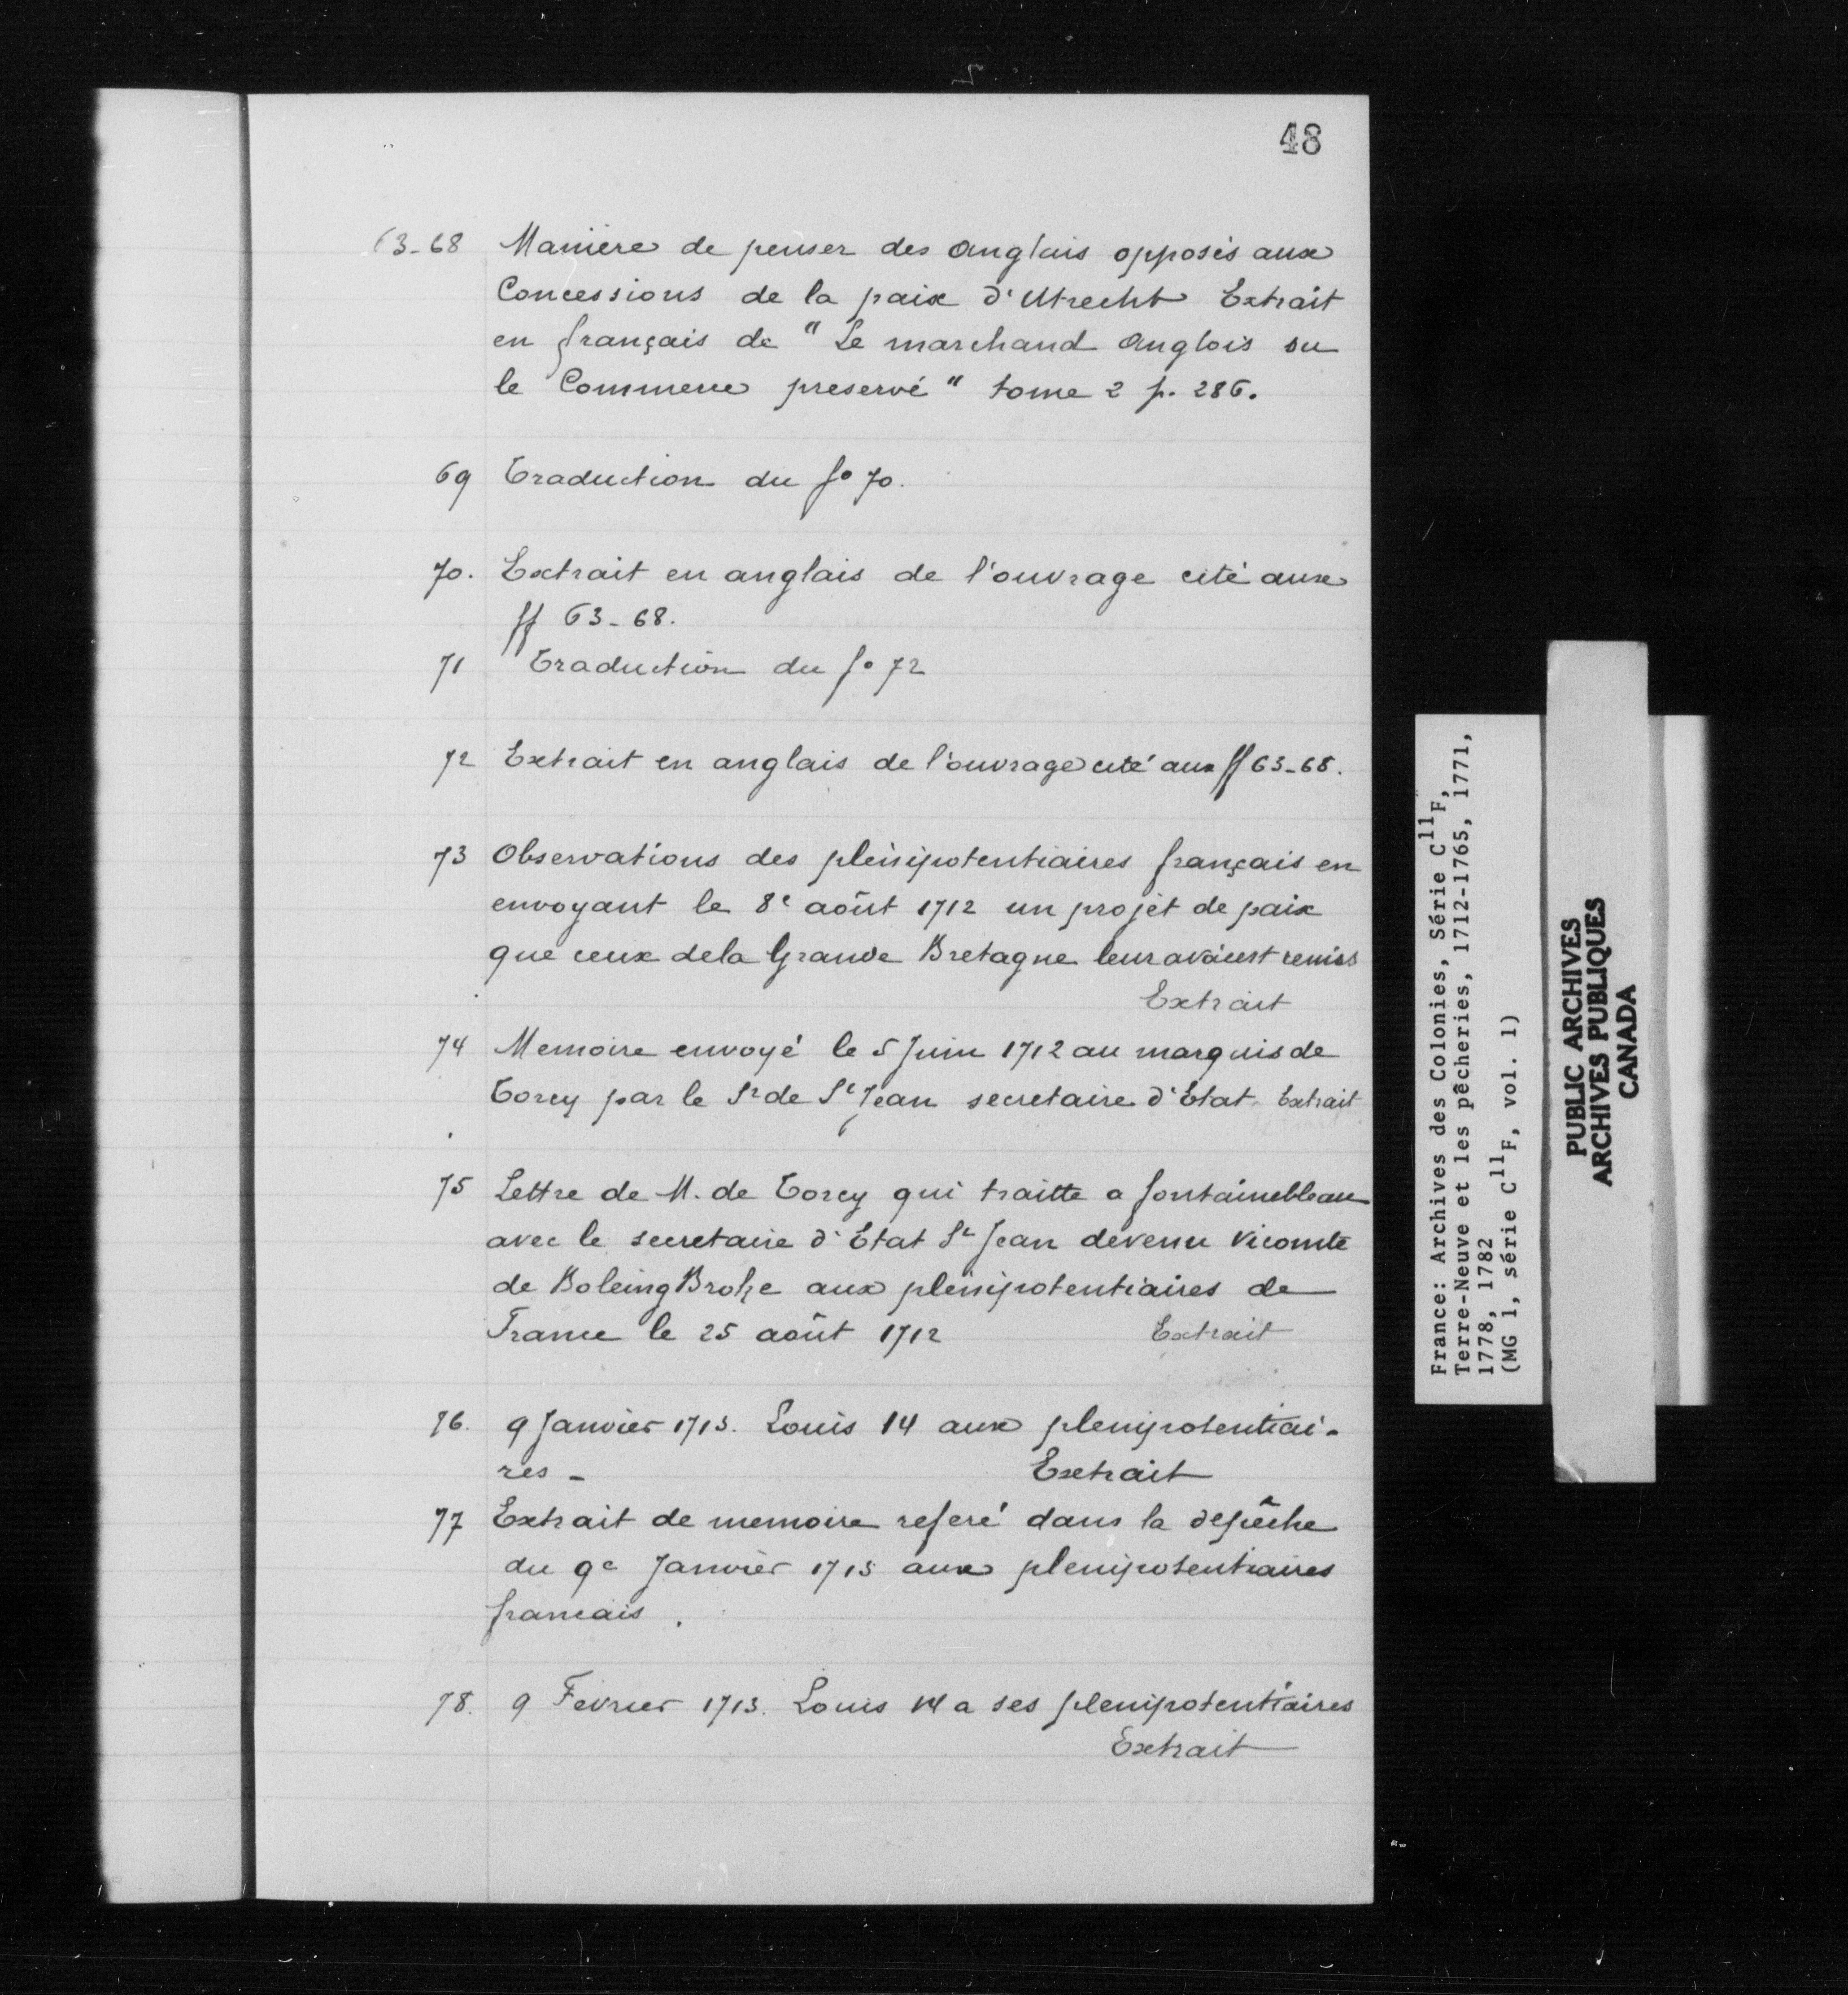 48
63-68 Manière de penser des Anglais opposés aux
Concessions de la paix d'Utrecht Extrait
en français de "Le marchand Anglois ou
le Commerce preservé" tome 2 p. 286.
69 Traduction du fo 70.
70. Extrait en anglais de l'ouvrage cité aux
ff 63-68.
71 Traduction du fo 72
72 Extrait en anglais de l'ouvrage cité aux ff 63-68.
73 Observations des plénipotentiaires français en
envoyant le 8e août 1712 un projet de paix
que ceux de la Grande Bretagne leur avaient remiss
Extrait
74 Memoire envoyé le 5 Juin 1712 au marquis de
Torcy par le Sr de St Jean secretaire d'Etat Extrait
75 Lettre de M. de Torcy qui traitte a fontainebleau
avec le secretaire d'Etat St Jean devenu Vicomte
de BoleingBroke aux plenipotentiaires de
France le 25 août 1712 Extrait
76. 9 Janvier 1713. Louis 14 aux plenipotentiai-
res - Extrait
77 Extrait de memoire referé dans la depêche
du 9e Janvier 1713 aux plenipotentiaires
francais.
78. 9 Fevrier 1713. Louis 14 a ses plenipotentiaires
Extrait
France: Archives des Colonies, Série C11F,
Terre-Neuve et les pêcheries, 1712-1765, 1771,
1778, 1782
(MG 1, série C11F, vol. 1)
PUBLIC ARCHIVES
ARCHIVES PUBLIQUES
CANADA